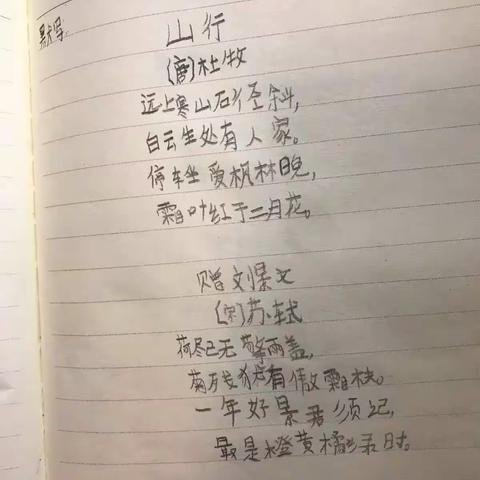 默写:
山行
(唐)杜牧
远上寒山石径斜,
白云生处有人家。
停车坐爱枫林晚,
霜叶红于二月花。
赠刘景文
(宋)苏轼
荷尽已无擎雨盖,
菊残犹有傲霜枝。
一年好景君须记,
最是橙黄橘绿时。